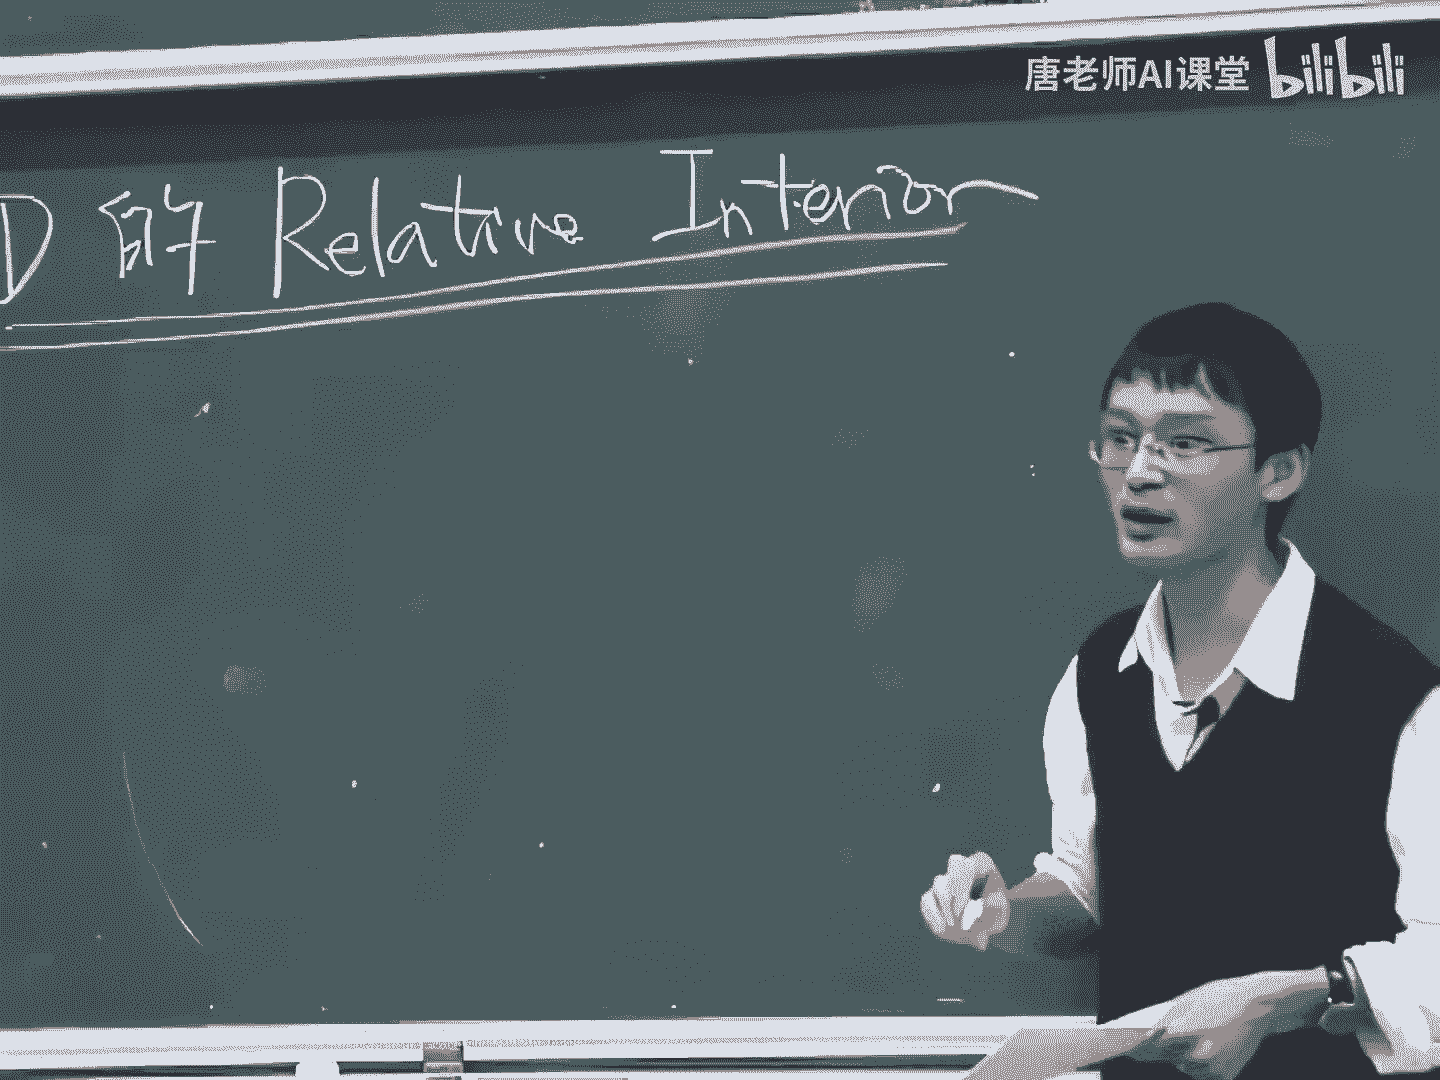 唐老师AI课堂 bilibili
D 的 Relative Interior